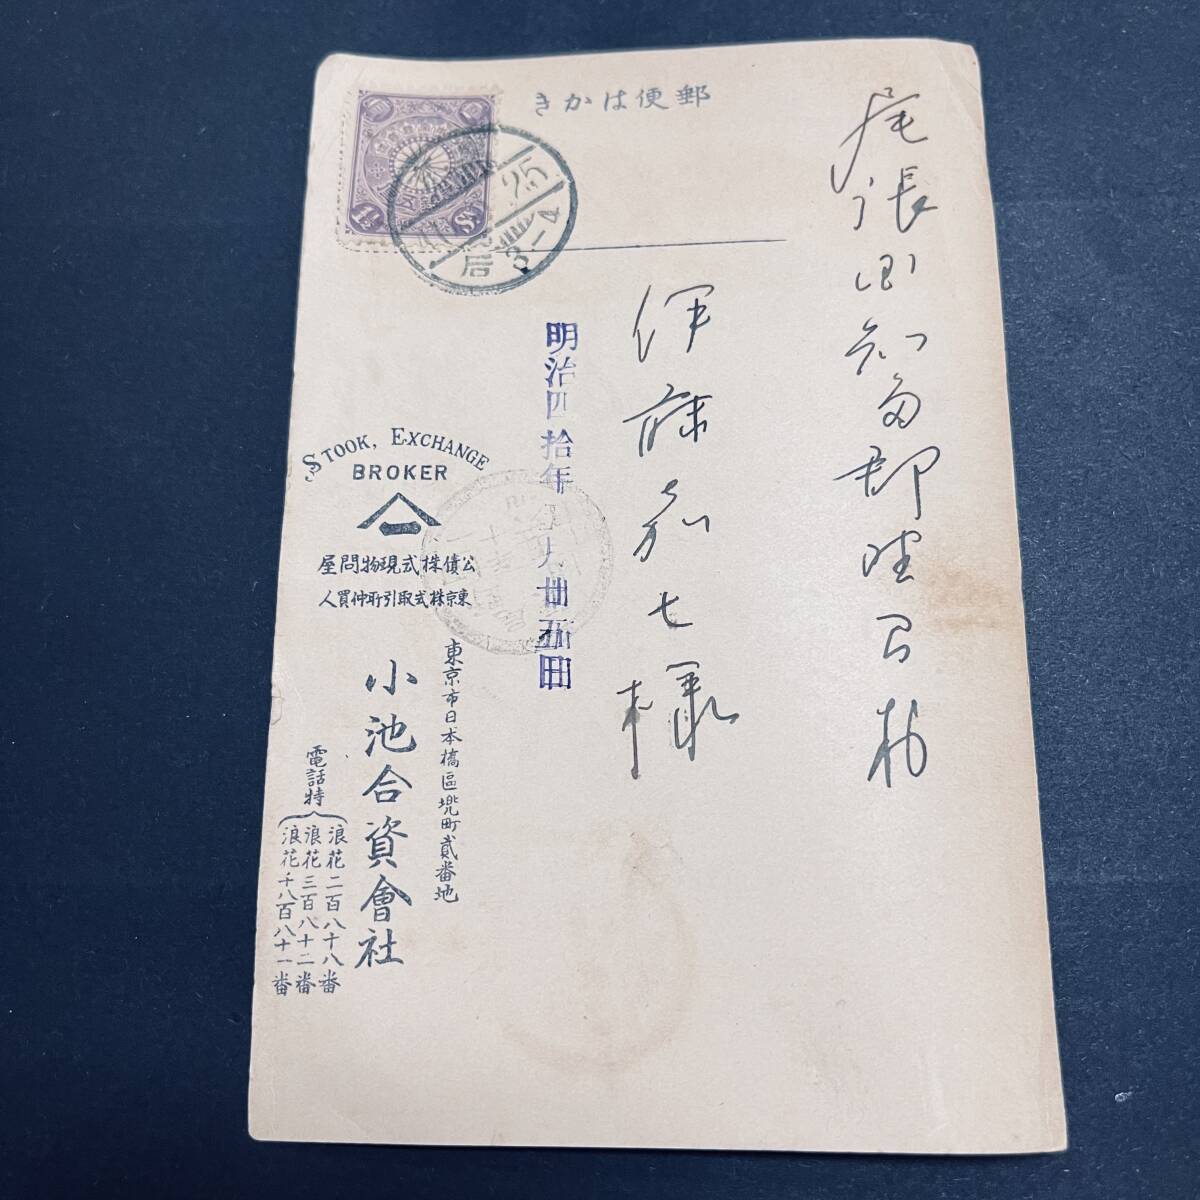 郵便はかき
1½ Sn.
25
后 3-4
尾張国知多郡野間村
伊藤嘉七様
明治四拾年
廿五日
STOOK, EXCHANGE
BROKER
公債株式現物問屋
東京株式取引所仲買人
東京市日本橋區兜町貳番地
小池合資會社
電話特
浪花二百八十八番
浪花三百八十二番
浪花千八百八十一番